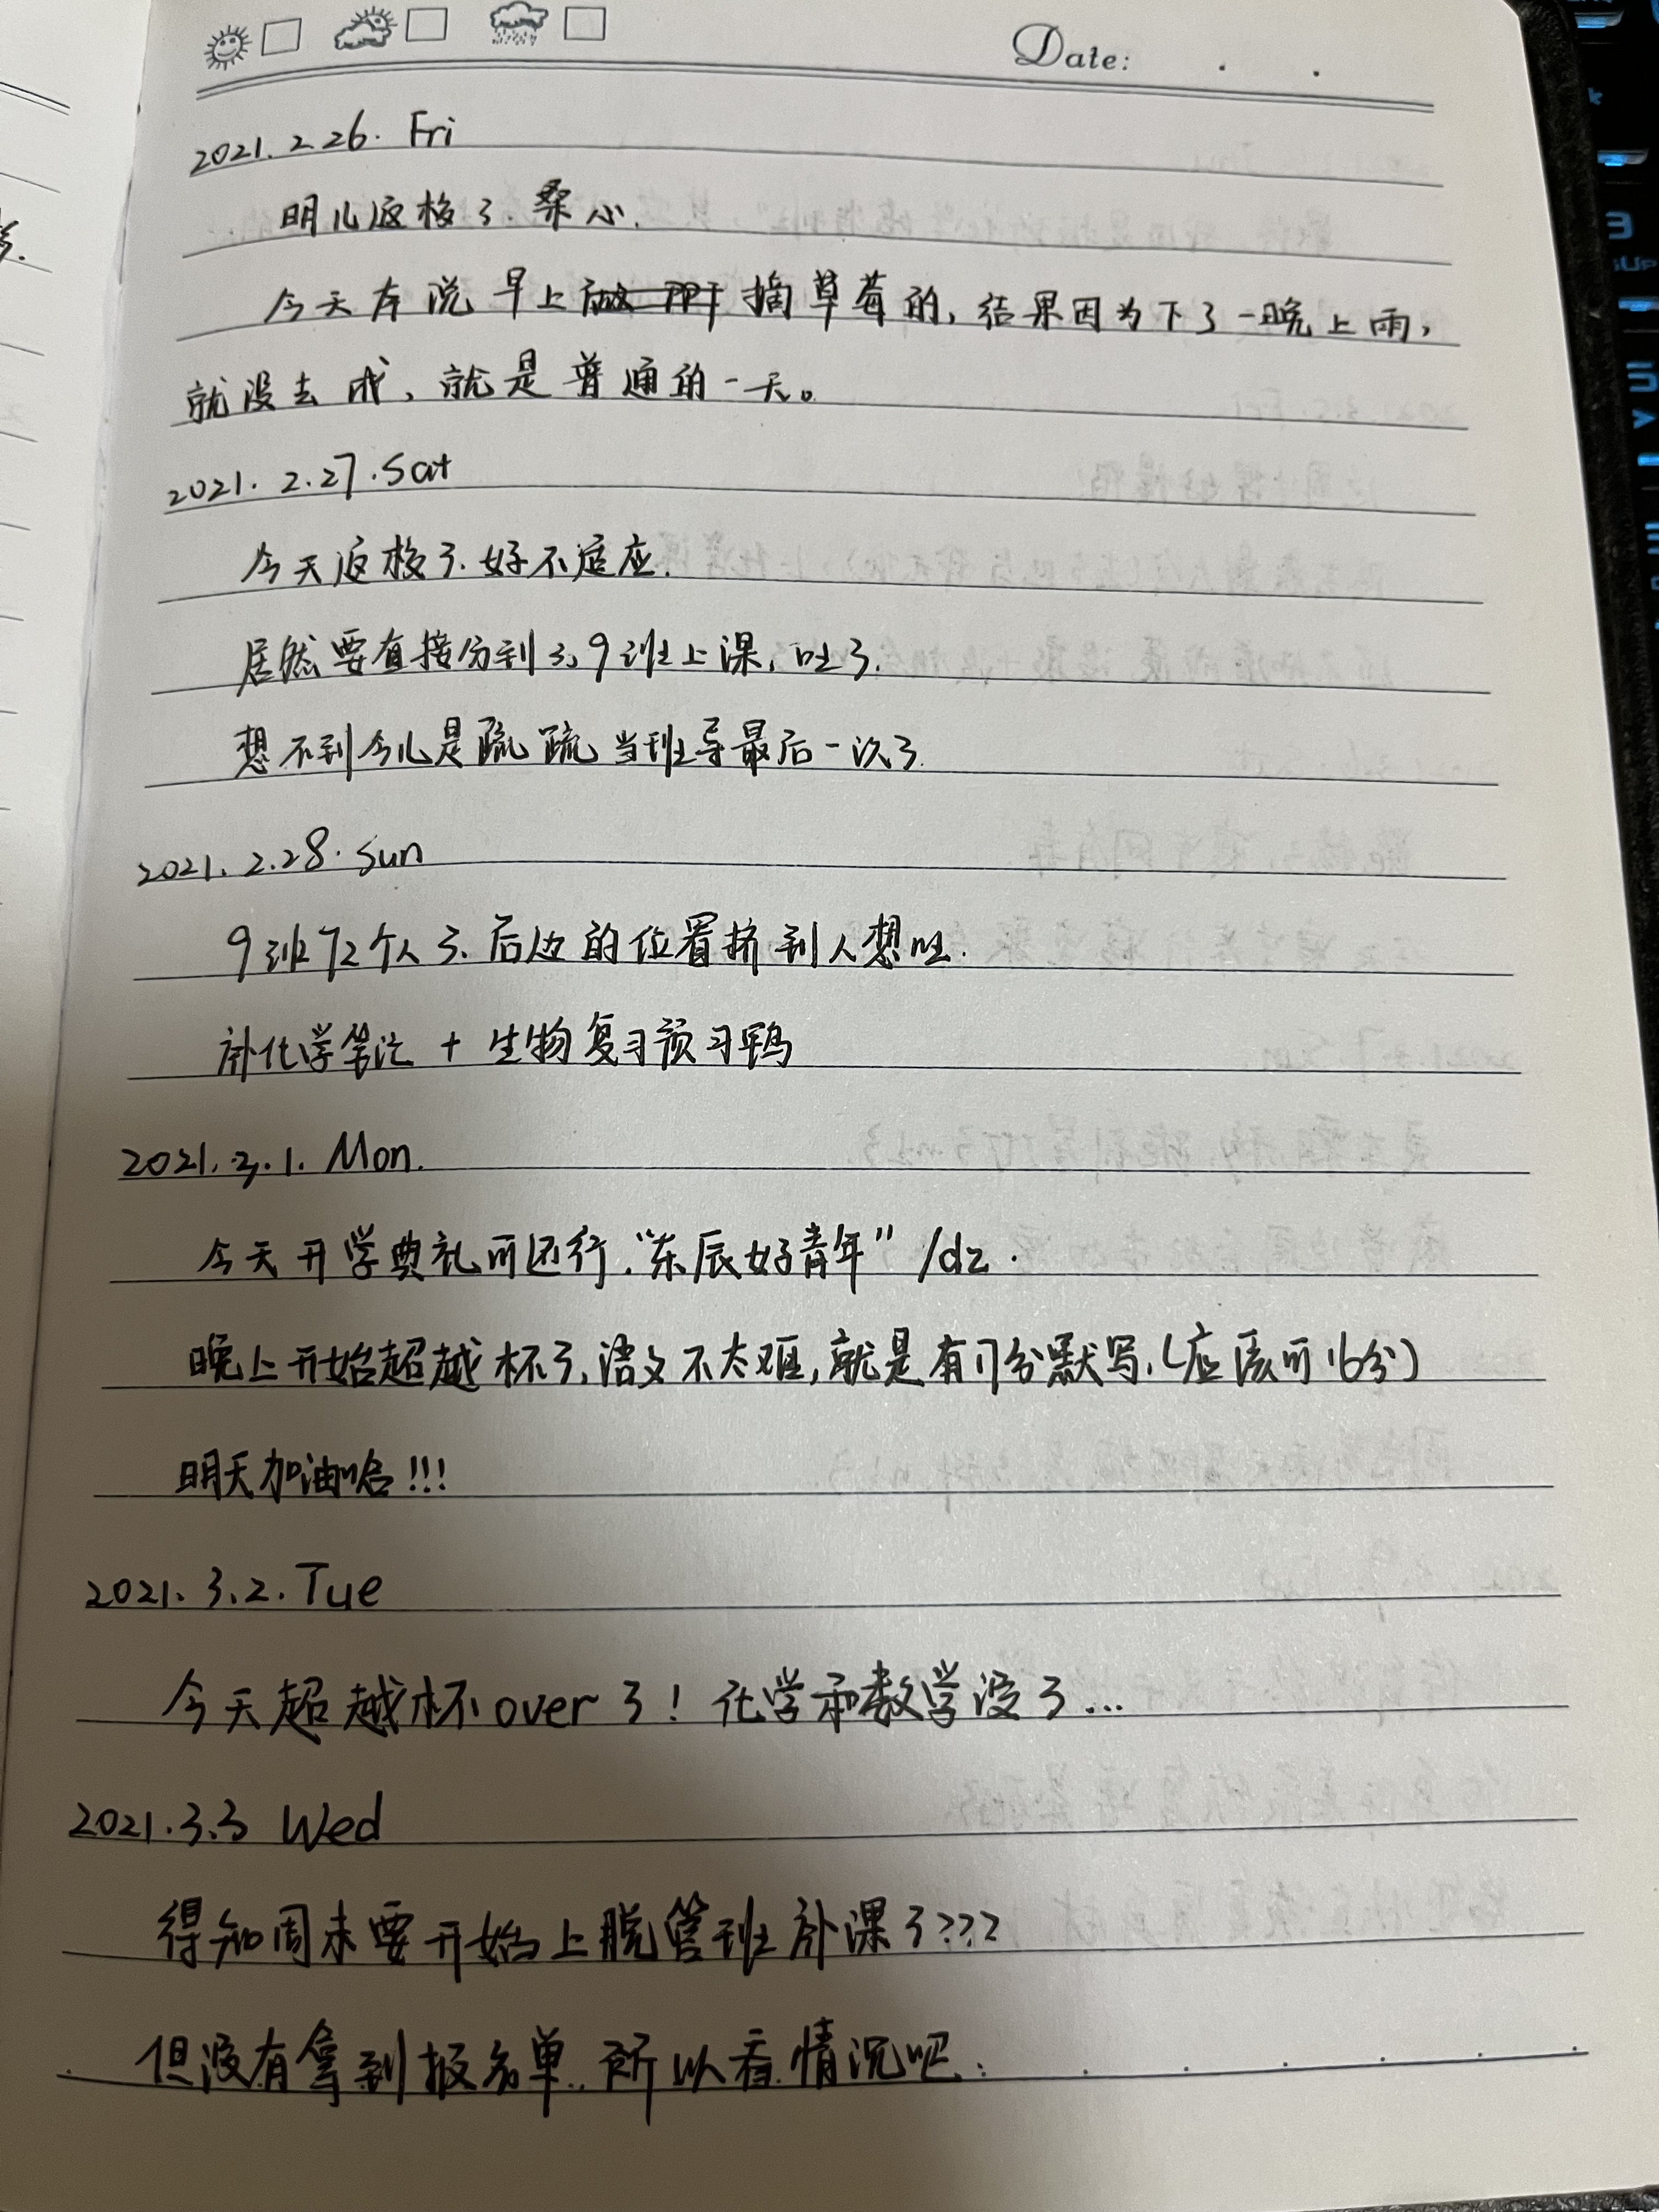 Date: . .
2021.2.26. Fri
明儿返校了.桑心.
今天本说早上做PPT摘草莓的,结果因为下了一晚上雨,
就没去成,就是普通的一天。
2021.2.27.Sat
今天返校了.好不适应.
居然要直接分到3,9班上课,吐了.
想不到今儿是疏疏当班导最后一次了.
2021.2.28.Sun
9班72个人了.后边的位置挤到人想吐.
补化学笔记 + 生物复习预习鸭
2021.3.1. Mon.
今天开学典礼可还行."东辰好青年" /dz.
晚上开始超越杯了,语文不太难,就是有7分默写.(应该可16分)
明天加油哈!!!
2021.3.2.Tue
今天超越杯over了! 化学和数学没了...
2021.3.3 Wed
得知周末要开始上脱管班补课了???
但没有拿到报名单.所以看情况吧.